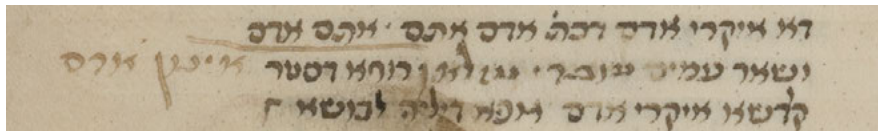 דא איקרי אדם דכת' אדם אתם · אתם אדם
ושאר עמים רוחא דסטר אינן אדם
קדשא איקרי אדם גופא דיליה לבושא